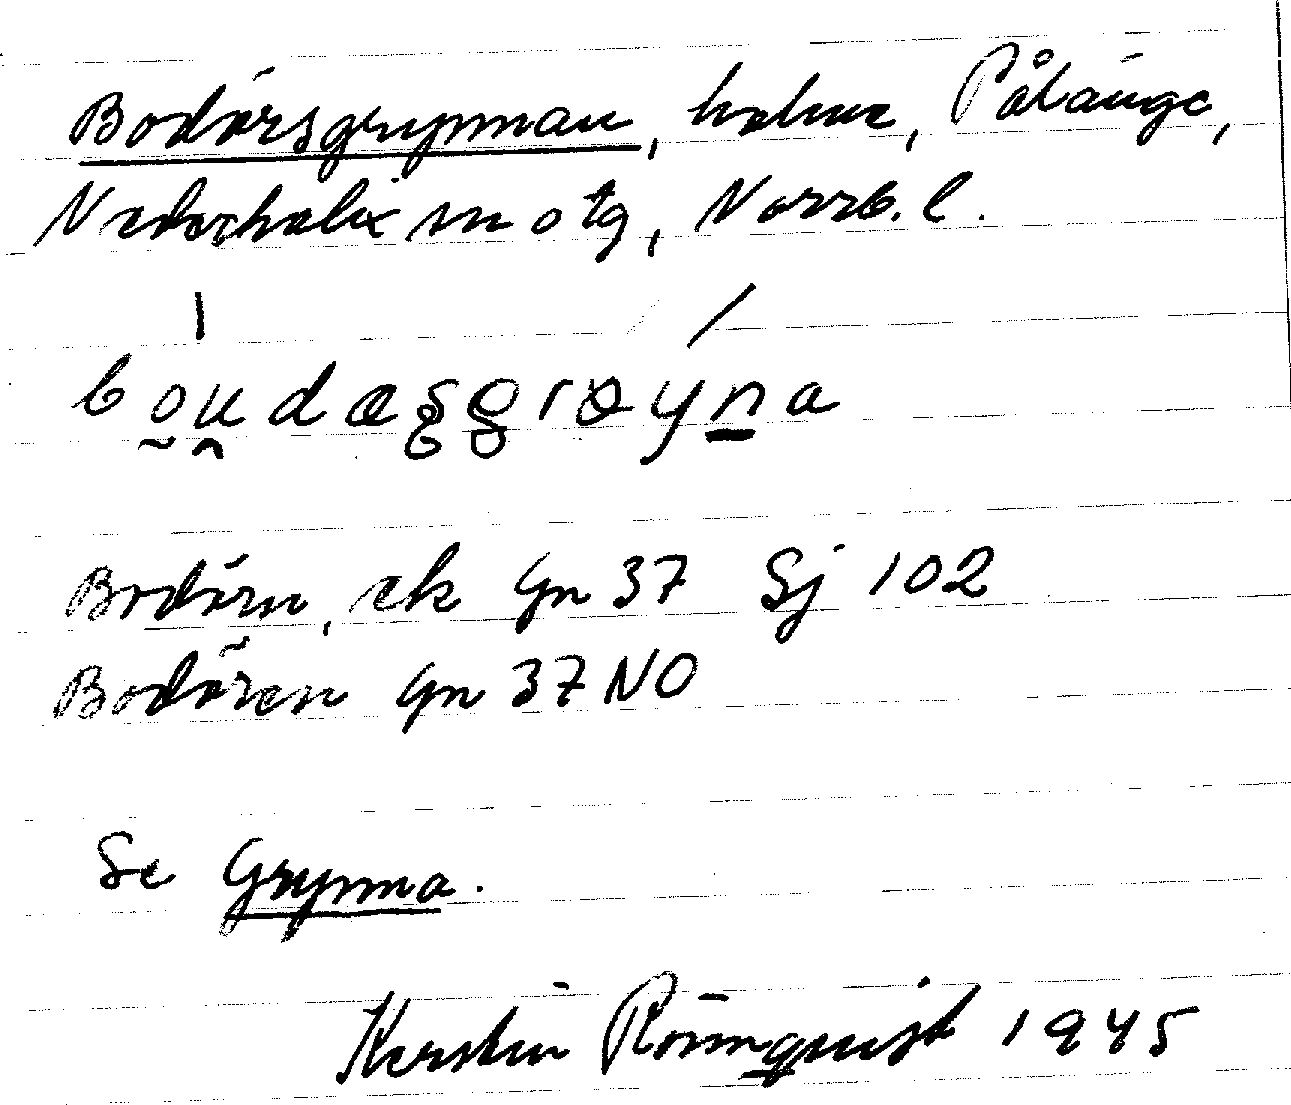 Bodörsgrynnan, holme, Pålänge,
Nederkalix sn o tg, Norrb. l.
boudæsgrøyna
Bodörn, ek Gn 37 Sj 102
Bodören Gn 37 NO
Se Grynna.
Kerstin Rönnquist 1945